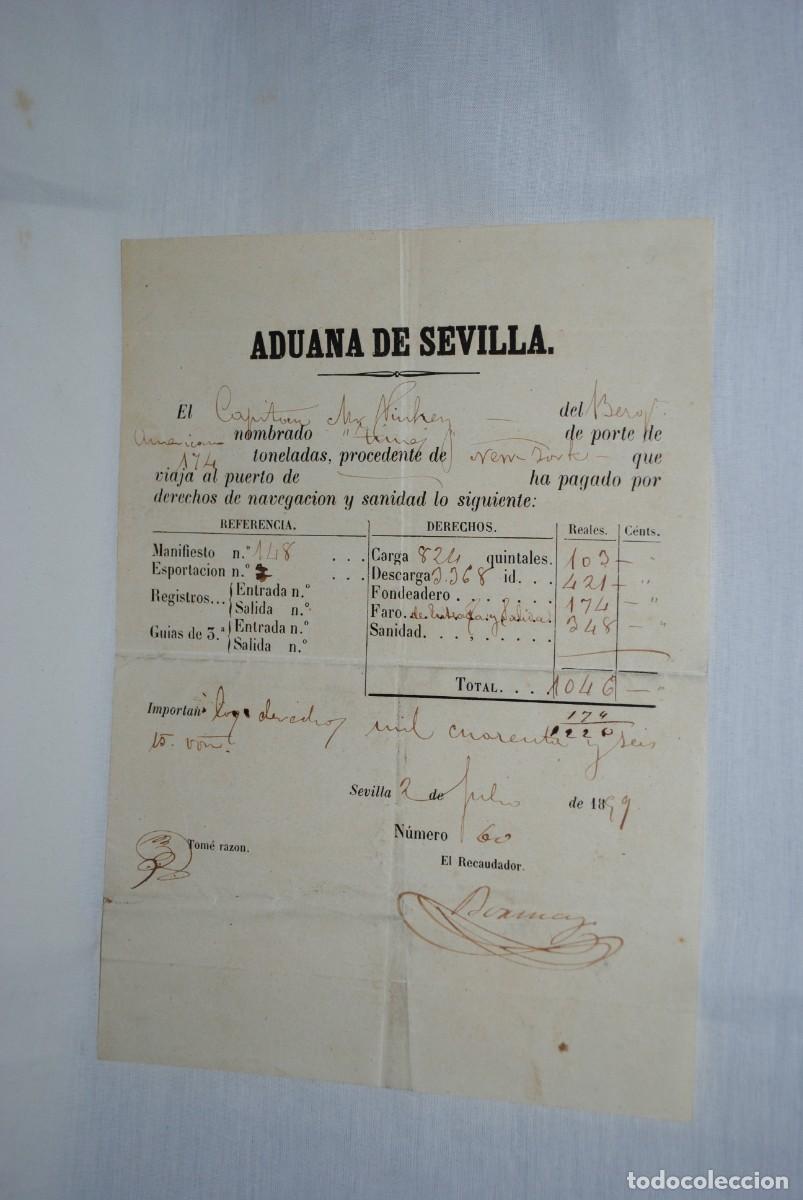 ADUANA DE SEVILLA.
El Capitan Mr Hinkey del Bergn.
American nombrado " " de porte de
174 toneladas, procedente de New York que
viaja al puerto de ha pagado por
derechos de navegacion y sanidad lo siguiente:
REFERENCIA. DERECHOS. Reales. Cénts.
Manifiesto n.º 148 . . . Carga 824 quintales. 103 — "
Esportacion n.º . . . Descarga 3.368 id. . . 421 — "
Registros... Entrada n.º Fondeadero . . . . . . 174 — "
Salida n.º Faro. de Entrada y Salida 348 — "
Guias de 3.ª Entrada n.º Sanidad. . . , . . . . .
Salida n.º
TOTAL. . . 1046 — "
174
1220
Importan los derechos mil cuarenta y seis
rs. von.
Sevilla 2 de Julio de 1859
Número 60
Tomé razon.
El Recaudador.
todocoleccion